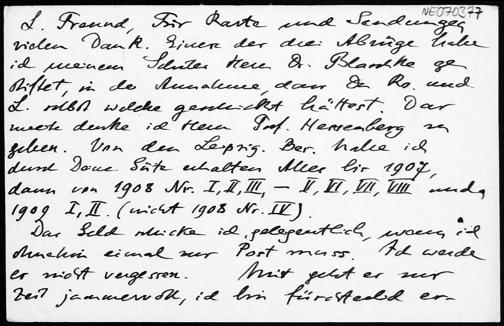 NE070377
L. Freund, Für Karte und Sendungen
vielen Dank. Einen der drei Abzüge habe
ich meinem Schüler Herrn Dr. Blaschke ge
stiftet, in der Annahme, dass Du Ro. und
L. selbst welche geschickt hättest. Das
zweite denke ich Herrn Prof. Herzenberg zu
geben. Von den Leipzig. Ber. habe ich
durch Deine Güte erhalten Alles bis 1907,
dann von 1908 Nr. I, II, III, – V, VI, VII, VIII und
1909 I, II. (nicht 1908 Nr. IV).
Das Geld schicke ich gelegentlich, wenn ich
ohnehin einmal zur Post muss. Ich werde
es nicht vergessen. Mir geht es zur
Zeit jammervoll, ich bin fürchterlich er-